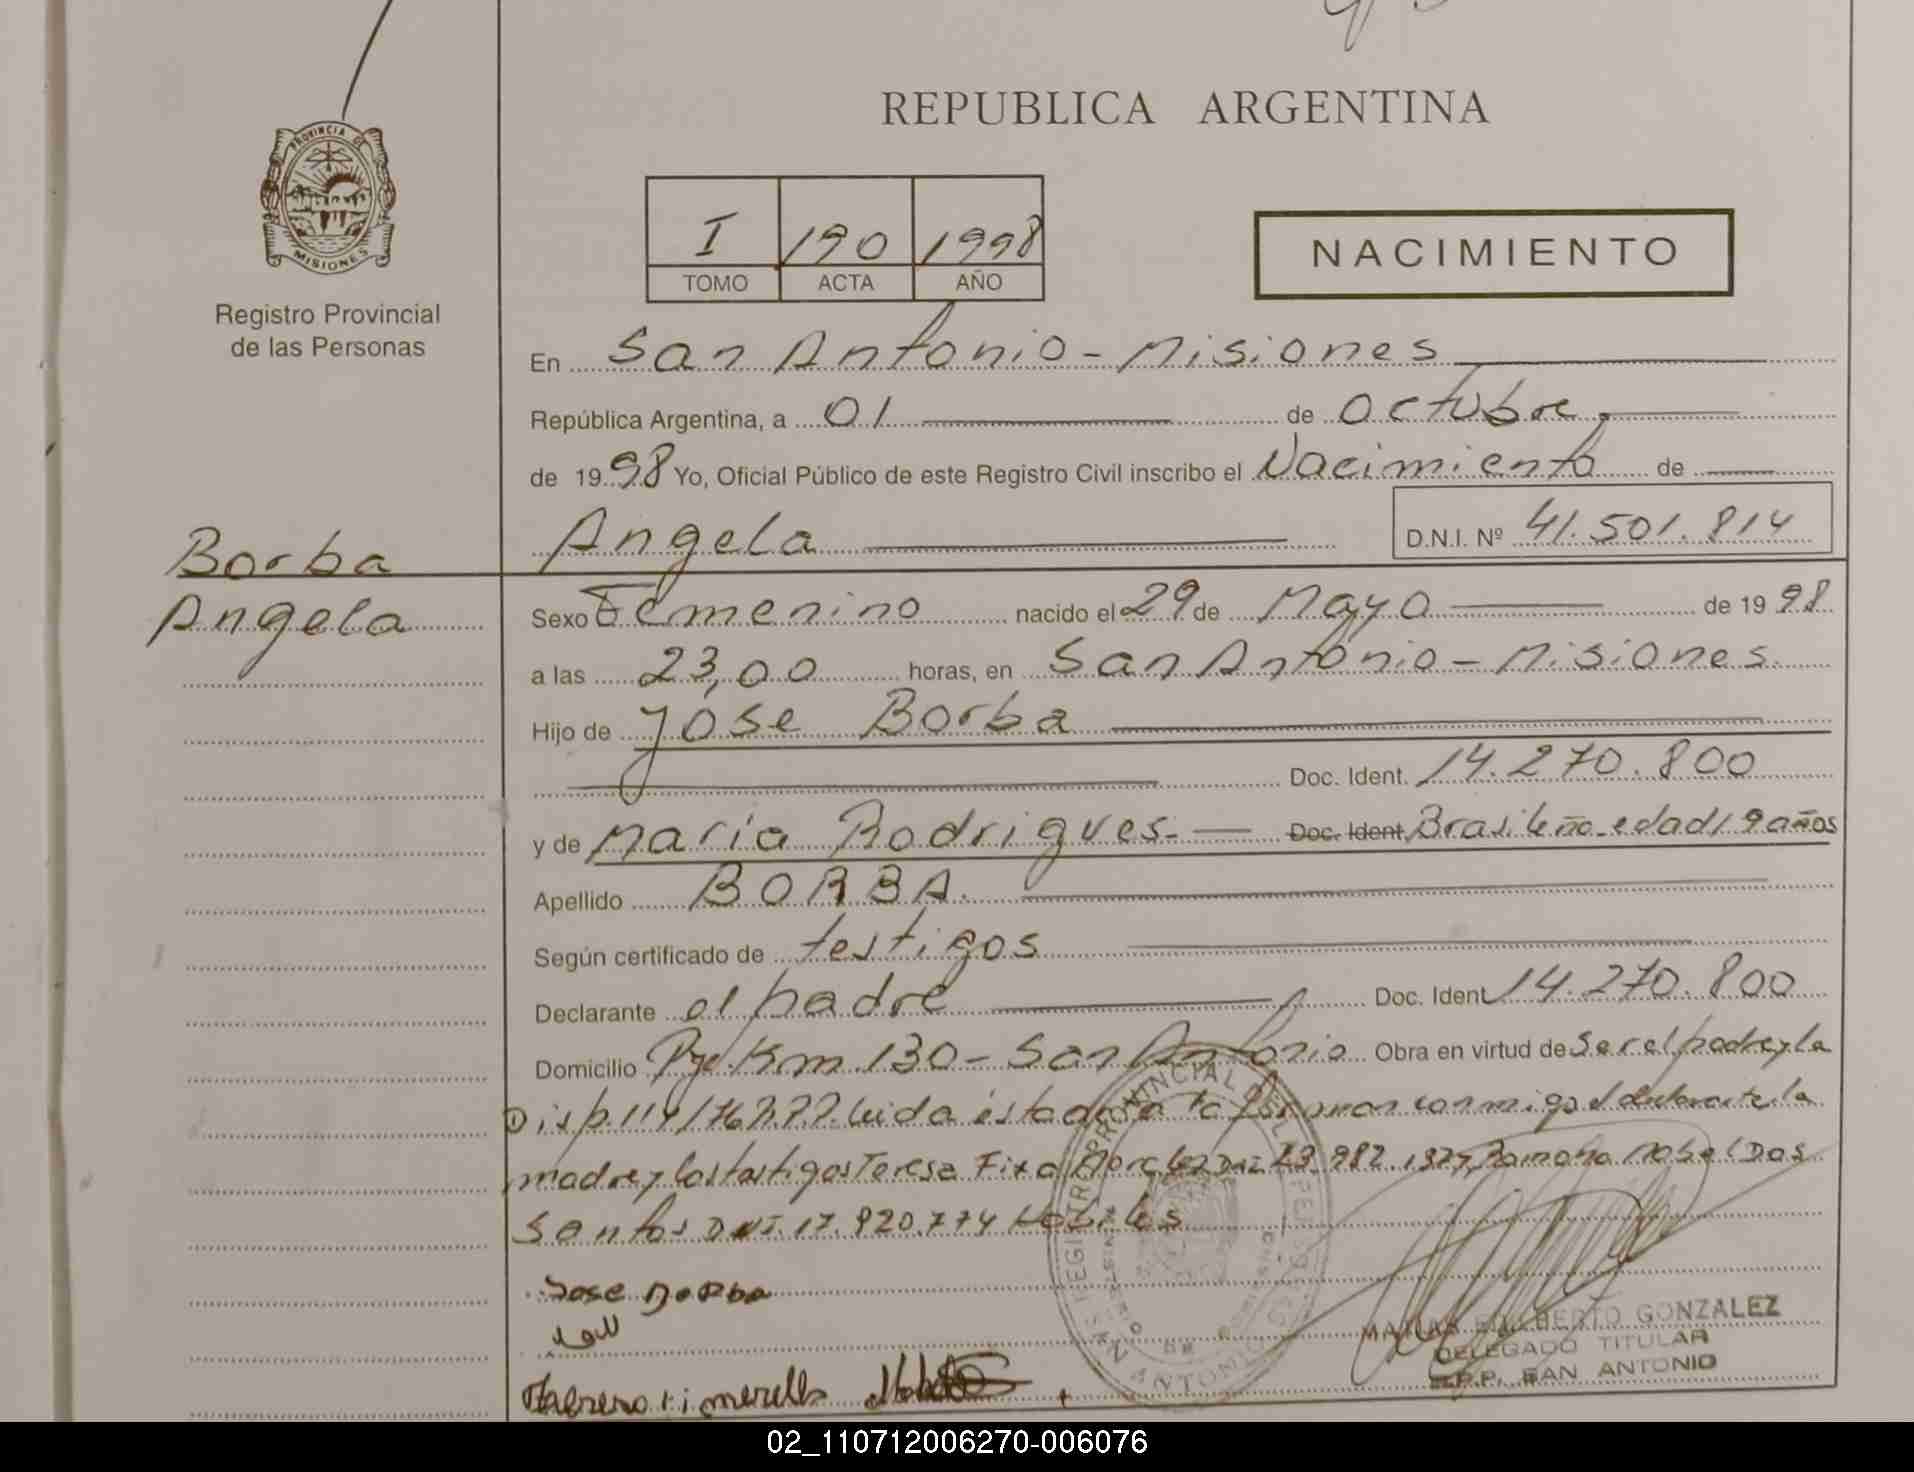 REPUBLICA ARGENTINA
PROVINCIA DE
MISIONES
Registro Provincial
de las Personas
I 190 1998
TOMO ACTA AÑO
NACIMIENTO
En San Antonio - Misiones
República Argentina, a 01 de Octubre
de 1998 Yo, Oficial Público de este Registro Civil inscribo el Nacimiento de
Angela D.N.I. Nº 41.501.814
Borba
Angela
Sexo Femenino nacido el 29 de Mayo de 1998
a las 23,00 horas, en San Antonio - Misiones
Hijo de Jose Borba
Doc. Ident. 14.270.800
y de Maria Rodrigues - Doc. Ident. Brasileña edad 19 años
Apellido BORBA.
Según certificado de testigos
Declarante el padre Doc. Ident 14.270.800
Domicilio Pje. Km 130 - San Antonio Obra en virtud de Ser el padre y la
Disp. 114/76 leida esta acta la firman conmigo el declarante, la
madre y los testigos Teresa 23.982.137, Ramona Mabel Dos
Santos DNI. 17.920.774 Habiles
Jose Borba
REGISTRO PROVINCIAL DE
SAN ANTONIO
MATIAS GONZALEZ
DELEGADO TITULAR
R.P.P. SAN ANTONIO
02_110712006270-006076